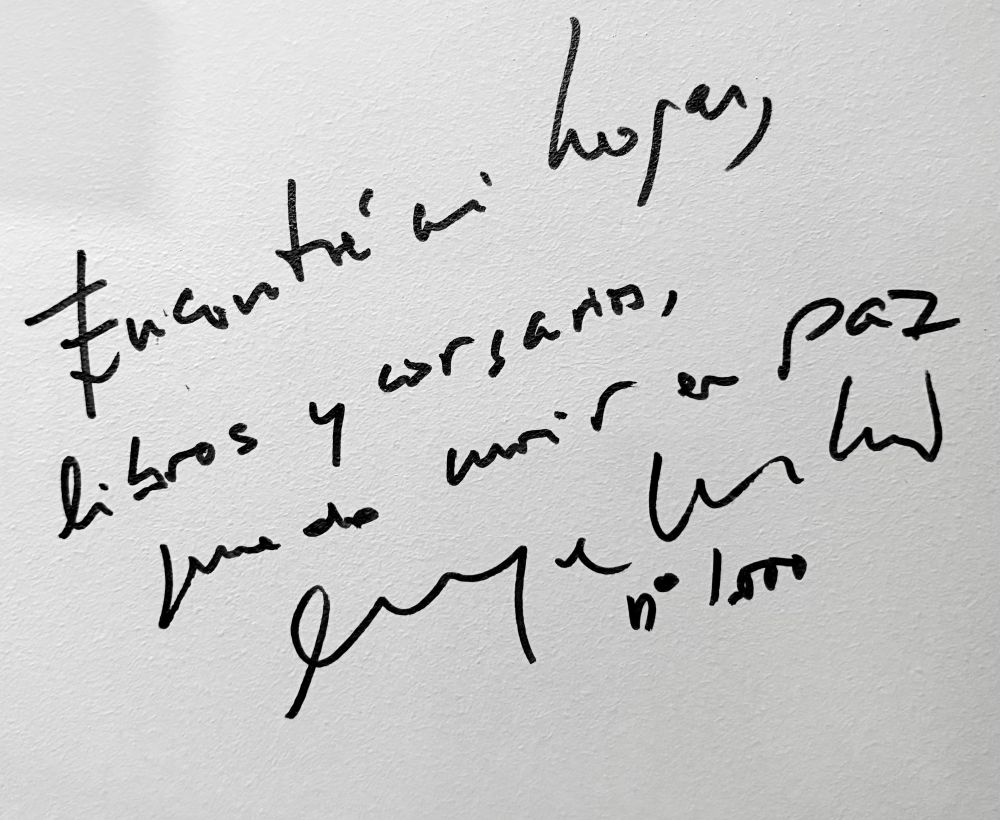 Encontré mi hogar,
libros y corsarios,
puedo morir en paz
nº 1.000